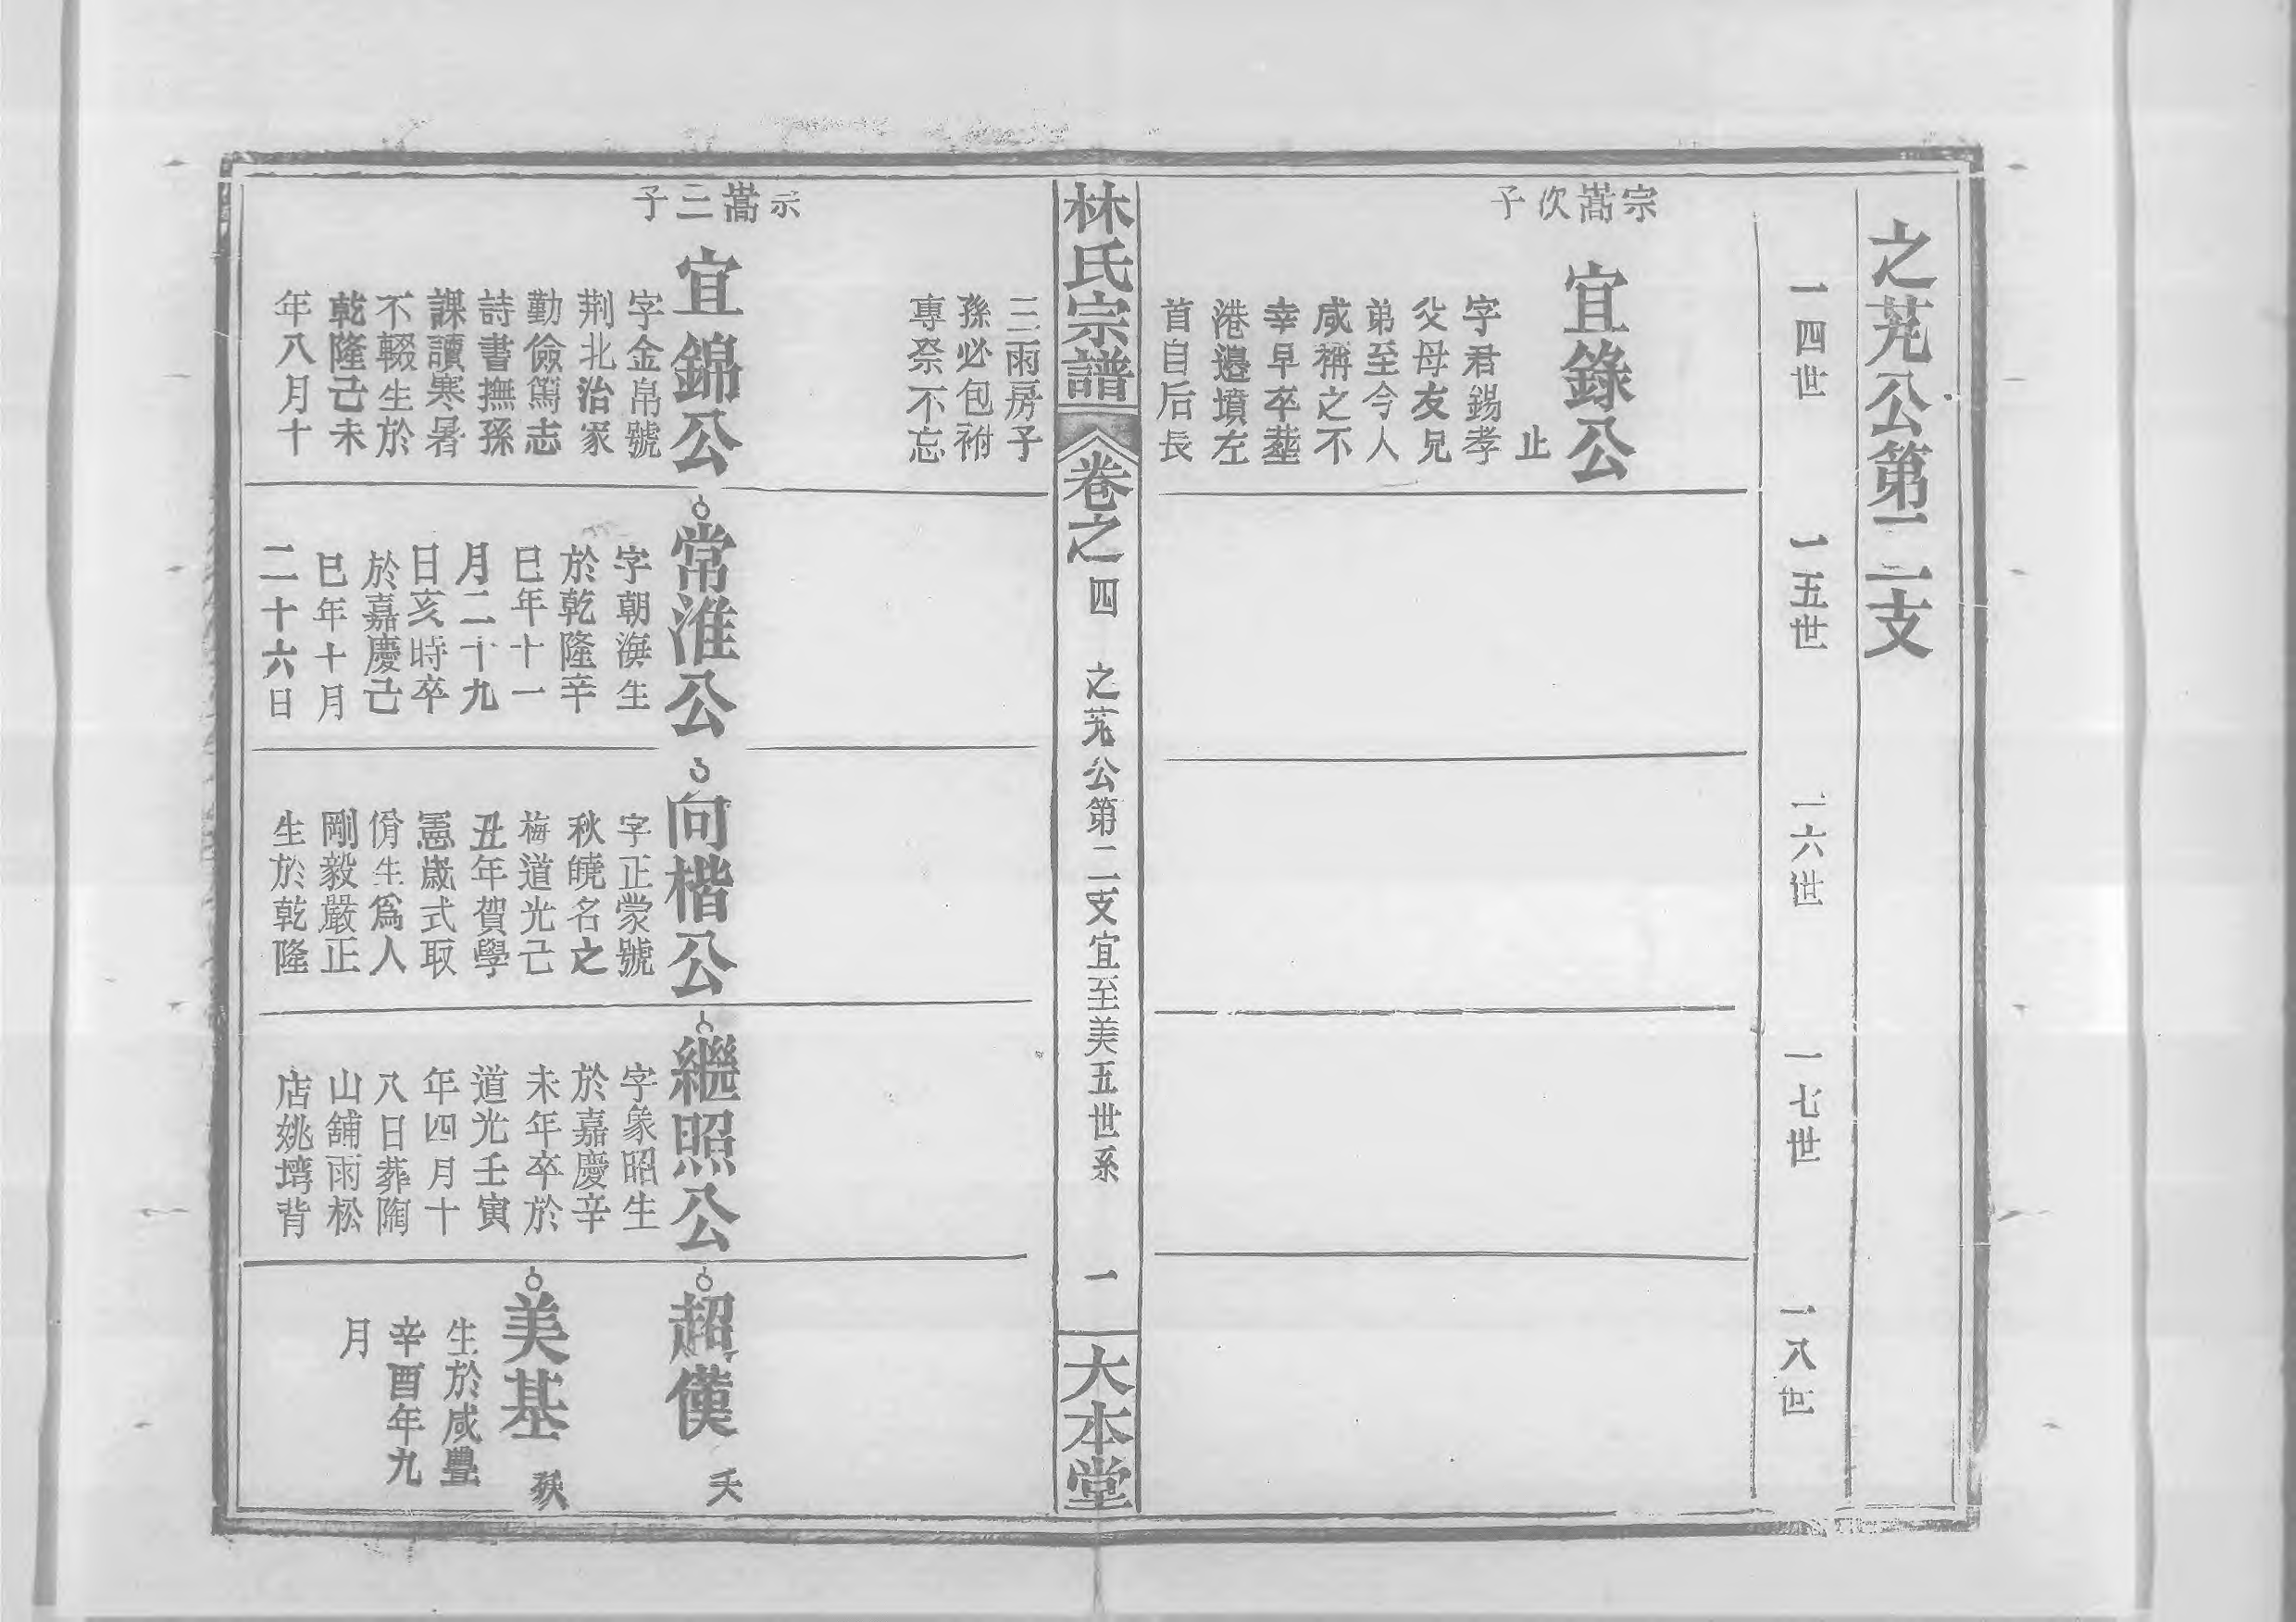 之芫公第二支
一四世
一五世
一六世
一七世
一八世
宗嵩次子
宜錄公
止
字君錫孝
父母友兄
弟至今人
咸稱之不
幸早卒塟
港邊墳左
首自后長
林氏宗譜
卷之四
之芫公第二支宜至美五世系
一
大本堂
三兩房子
孫必包祔
專祭不忘
宗嵩三子
宜錦公
字金帛號
荆北治家
勤儉篤志
詩書撫孫
課讀寒暑
不輟生於
乾隆己未
年八月十
常淮公
字朝海生
於乾隆辛
巳年十一
月二十九
日亥時卒
於嘉慶己
巳年十月
二十六日
向楷公
字正蒙號
秋曉名之
梅道光己
丑年賀學
憲歲式取
佾生爲人
剛毅嚴正
生於乾隆
繼照公
字象昭生
於嘉慶辛
未年卒於
道光壬寅
年四月十
八日葬陶
山舖雨松
店姚塆背
超僕
夭
美基
生於咸豐
辛酉年九
月